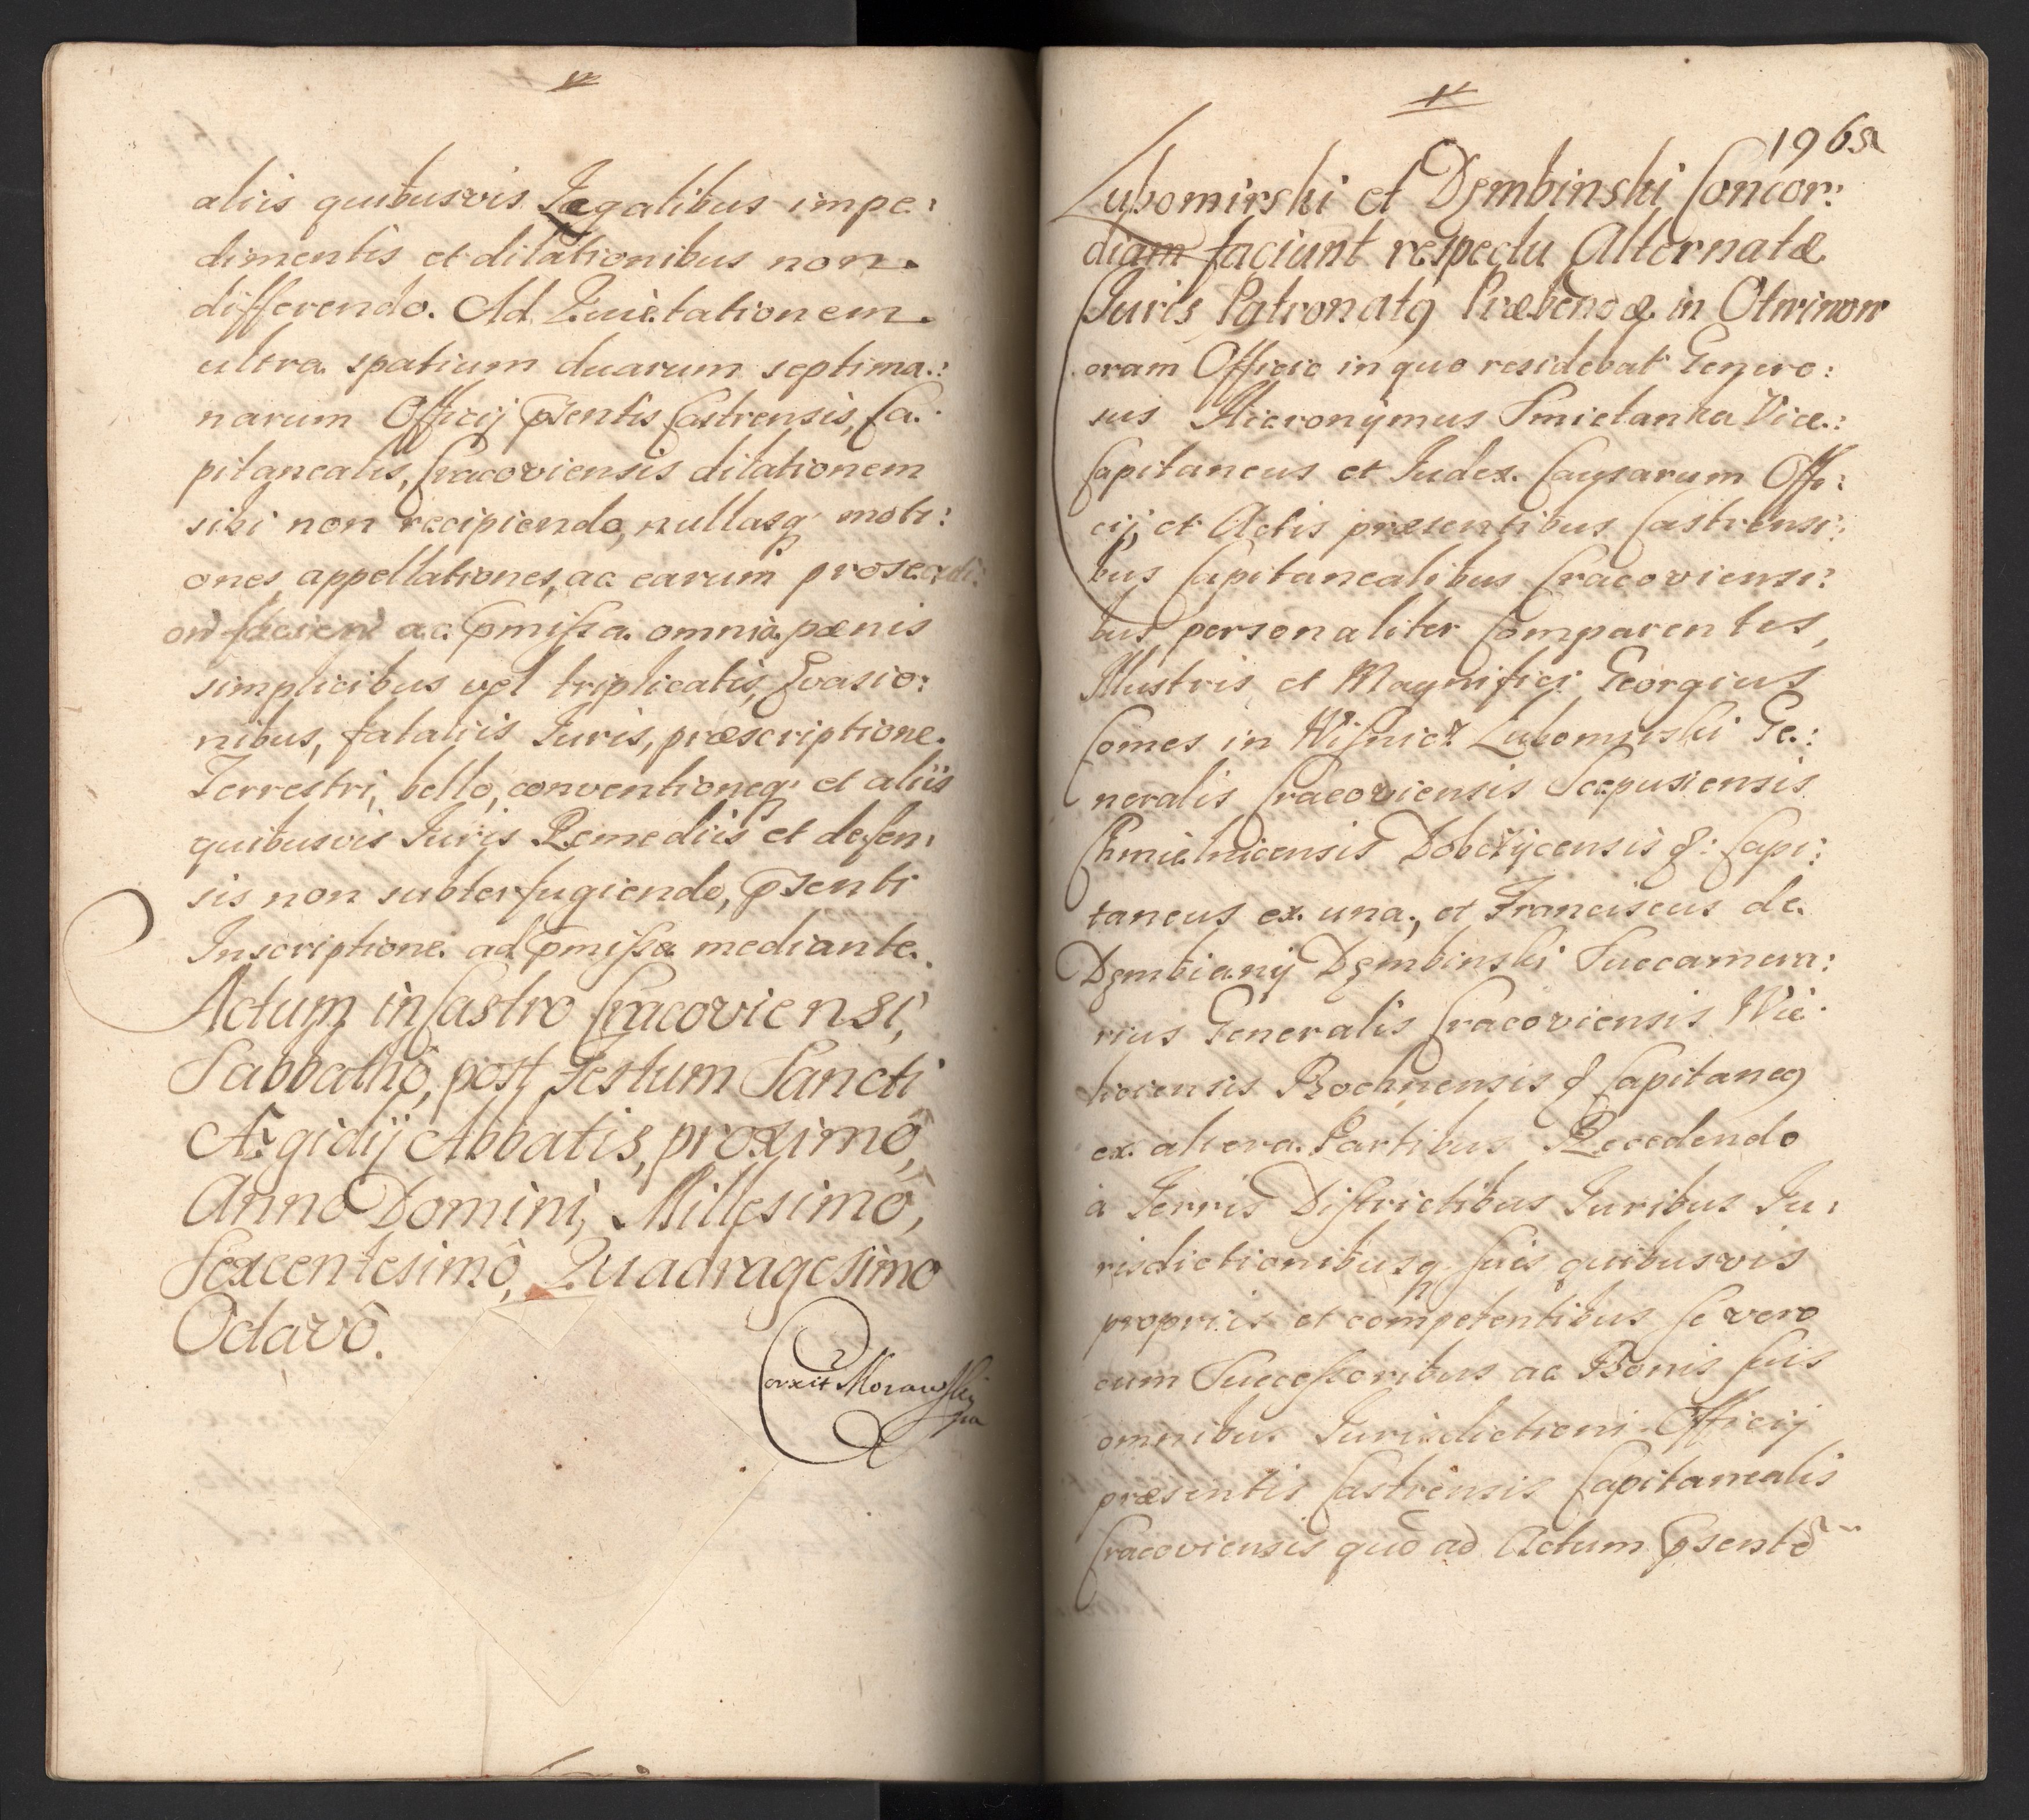 aliis quibusvis Legalibus impe:
dimentis et dilationibus non
differendo. Ad Quietationem
ultra spatium duarum septima:
narum Officij pñtis Castrensis, Ca:
pitanealis, Cracoviensis dilationem
sibi non recipiendo, nullasq moti:
ones appellationes, ac earum prosecuti:
oñ facien ac pmissa omnia pænis
simplicibus vel triplicatis, Evasio:
nibus, fataliis Iuris, præscriptione
Terrestri, bello, conventioneq et aliis
quibusvis Iuris Remediis et defen:
sis non subterfugiendo, psenti
Inscriptione ad pmissa mediante.
Actum in Castro Cracoviensi,
Sabbathô, post Festum Sancti
Ægidij Abbatis, proximô,
Anno Domini, Millesimô,
Sexcentesimô, Quadragesimo
Octavô.
Corexit Morawski
1965
Lubomirski et Dęmbinski Concor:
diam faciunt respectu Alternatæ
Iuris Patronatq Præbendæ in Otwinow
oram Officio in quo residebat Genero:
sus Hieronymus Smietanka Vice:
Capitaneus et Iudex Causarum Offi:
cij, et Actis præsentibus Castrensi:
bus Capitanealibus Cracoviensi:
bus personaliter Comparentes,
Illustris, et Magnifici Georgius
Comes in Wisnicz Lubomirski Ge:
neralis Cracoviensis Scepusiensis
Chmielnicensis Dobczycensis &: Capi:
taneus ex una, et Franciscus de
Dęmbiany Dęmbinski Succamera:
rius Generalis Cracoviensis Wie:
licensis Bochnensis & Capitaneq
ex altera Partibus Recedendo
à Terris Districtibus Iuribus Iu:
risdictionibusq suis quibusvis
propriis et competentibus se vero
cum Successoribus ac Bonis suis
omnibus Iurisdictioni Officij
præsentis Castrensis Capitanealis
Cracoviensis quo ad Actum psentẽ